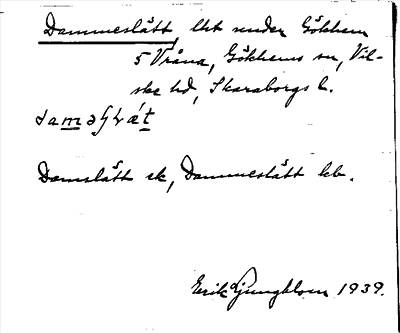 Dammeslätt, lht under Gökhem
5 Vråna, Gökhems sn, Vil-
ske hd, Skaraborgs l.
Damslätt ek, Dammeslätt kb.
Erik Ljungblom 1939.